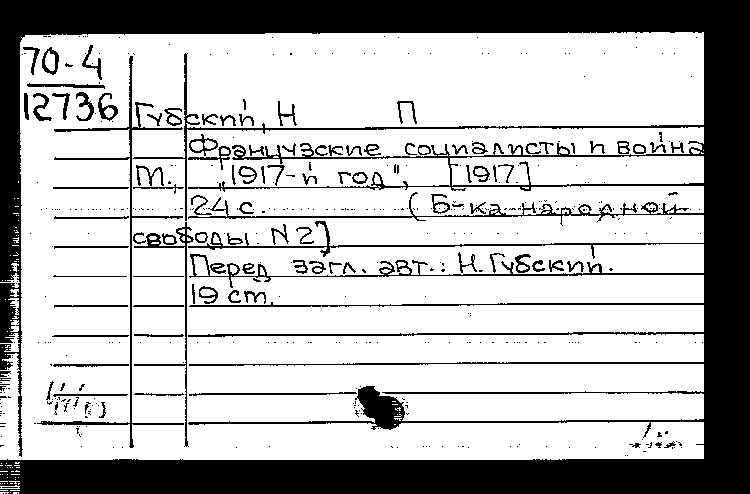 70-4
12736
Губский, Н П
Французские социалисты и война
М., "1917-й год", [1917]
24 с. (Б-ка народной
свободы N2]
Перед загл. авт.: Н. Губский.
19 см.